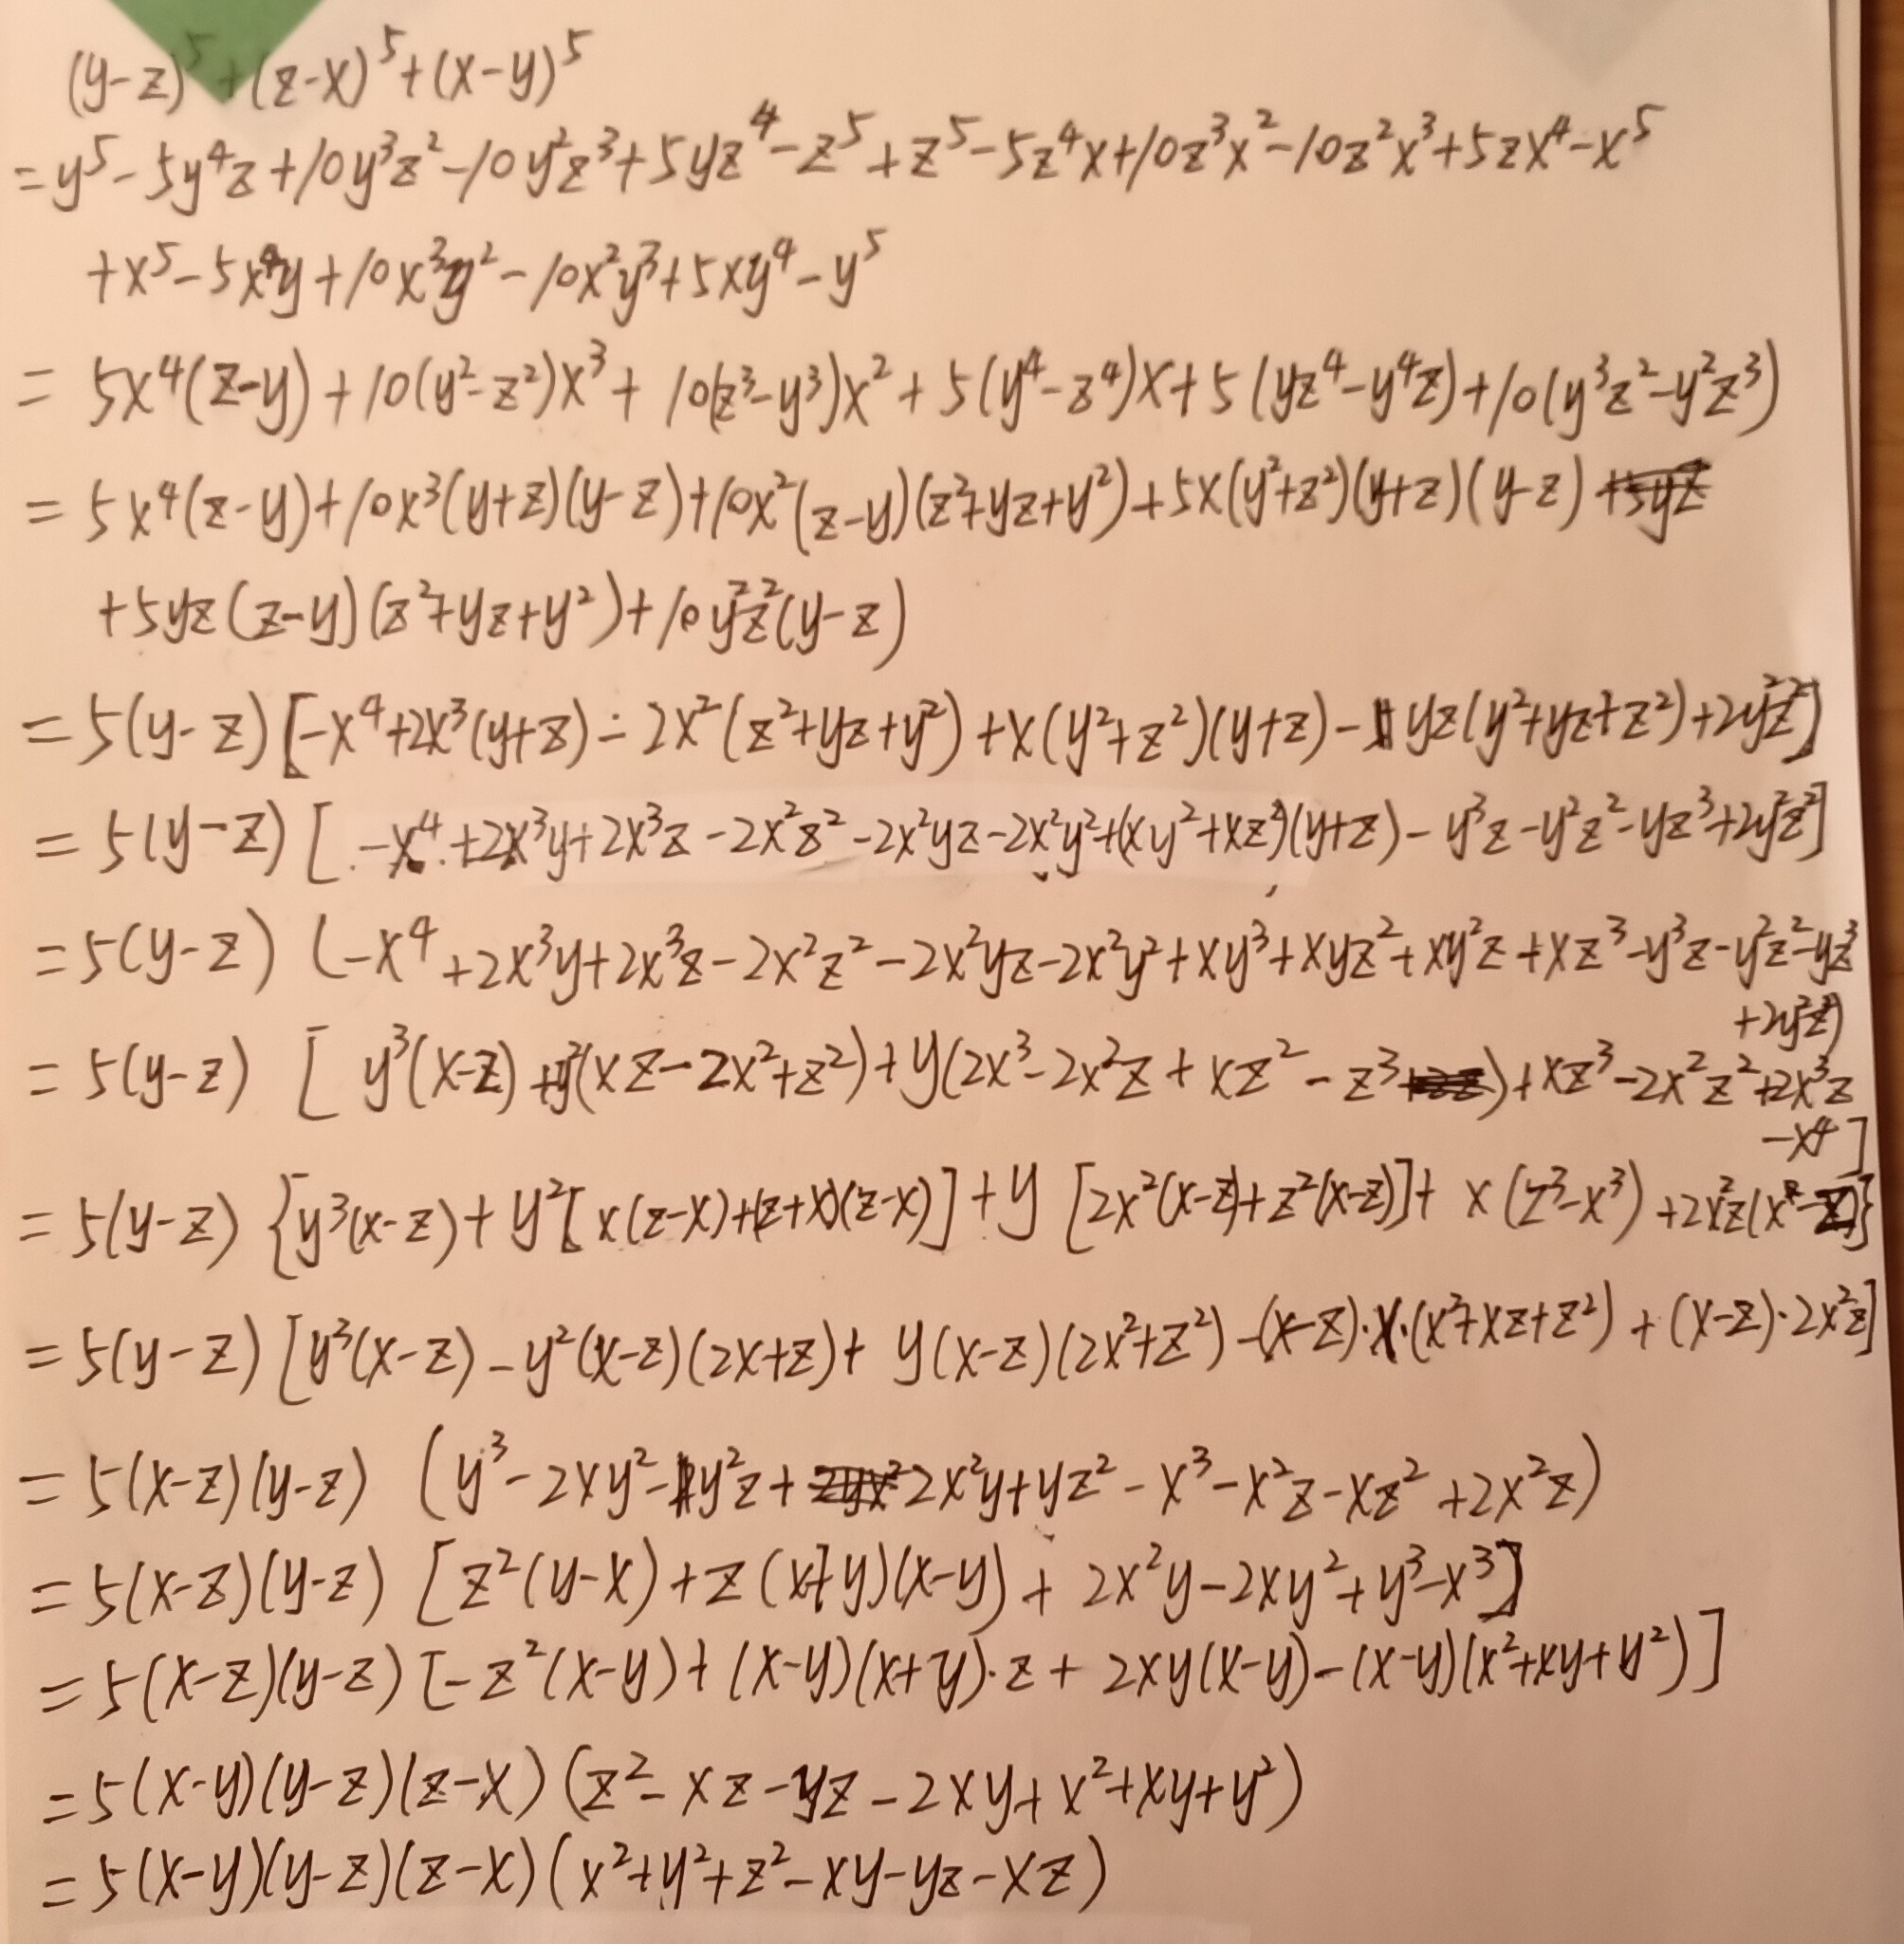 (y-z)⁵+(z-x)⁵+(x-y)⁵
=y⁵-5y⁴z+10y³z²-10y²z³+5yz⁴-z⁵+z⁵-5z⁴x+10z³x²-10z²x³+5zx⁴-x⁵
+x⁵-5x⁴y+10x³y²-10x²y³+5xy⁴-y⁵
= 5x⁴(z-y)+10(y²-z²)x³+10(z³-y³)x²+5(y⁴-z⁴)x+5(yz⁴-y⁴z)+10(y³z²-y²z³)
= 5x⁴(z-y)+10x³(y+z)(y-z)+10x²(z-y)(z²+yz+y²)+5x(y²+z²)(y+z)(y-z)
+5yz(z-y)(z²+yz+y²)+10y²z²(y-z)
=5(y-z)[-x⁴+2x³(y+z)-2x²(z²+yz+y²)+x(y²+z²)(y+z)-yz(y²+yz+z²)+2y²z²]
=5(y-z)[-x⁴+2x³y+2x³z-2x²z²-2x²yz-2x²y²+(xy²+xz²)(y+z)-y³z-y²z²-yz³+2y²z²]
=5(y-z)(-x⁴+2x³y+2x³z-2x²z²-2x²yz-2x²y²+xy³+xyz²+xy²z+xz³-y³z-y²z²-yz³
+2y²z²)
=5(y-z)[y³(x-z)+y²(xz-2x²+z²)+y(2x³-2x²z+xz²-z³)+xz³-2x²z²+2x³z
-x⁴]
=5(y-z){y³(x-z)+y²[x(z-x)+(z+x)(z-x)]+y[2x²(x-z)+z²(x-z)]+x(z³-x³)+2x²z(x-z)}
=5(y-z)[y³(x-z)-y²(x-z)(2x+z)+y(x-z)(2x²+z²)-(x-z)·x·(x²+xz+z²)+(x-z)·2x²z]
=5(x-z)(y-z)(y³-2xy²-y²z+2x²y+yz²-x³-x²z-xz²+2x²z)
=5(x-z)(y-z)[z²(y-x)+z(x+y)(x-y)+2x²y-2xy²+y³-x³]
=5(x-z)(y-z)[-z²(x-y)+(x-y)(x+y)·z+2xy(x-y)-(x-y)(x²+xy+y²)]
=5(x-y)(y-z)(z-x)(z²-xz-yz-2xy+x²+xy+y²)
=5(x-y)(y-z)(z-x)(x²+y²+z²-xy-yz-xz)